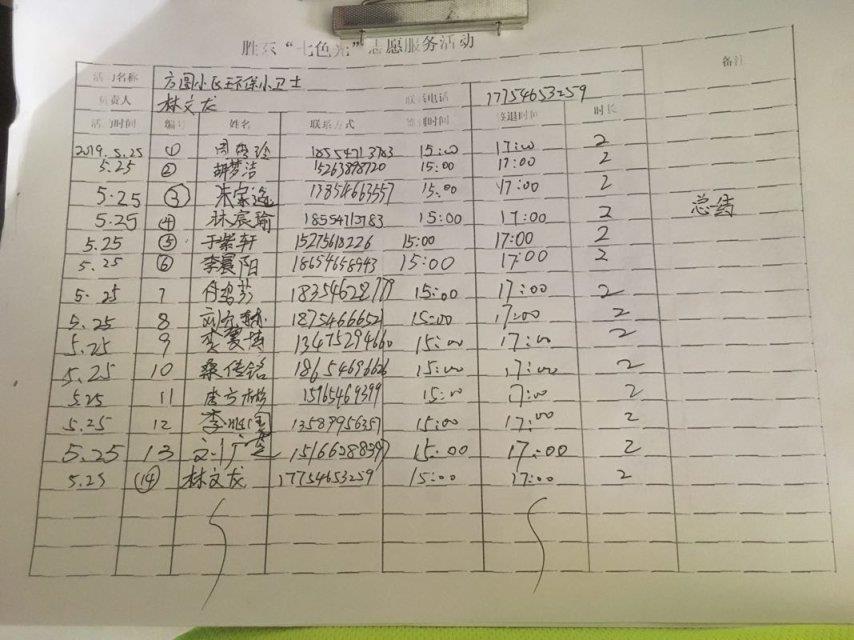 胜东“七色光”志愿服务活动
活动名称 方圆小区环保小卫士 备注
负责人 林文龙 联系电话 17754653259
活动时间 编号 姓名 联系方式 签到时间 签退时间 时长
2019.5.25 ① 18554713783 15:00 17:00 2
5.25 ② 胡梦洁 15263898720 15:00 17:00 2
5.25 ③ 17854663557 15:00 17:00 2 总结
5.25 ④ 林宸瑜 18554713783 15:00 17:00 2
5.25 ⑤ 于紫轩 15275618226 15:00 17:00 2
5.25 ⑥ 李晨阳 18654658943 15:00 17:00 2
5.25 7 18354628779 15:00 17:00 2
5.25 8 15:00 17:00 2
5.25 9 13475294660 15:00 17:00 2
5.25 10 桑传铭 18654696626 15:00 17:00 2
5.25 11 15165469399 15:00 17:00 2
5.25 12 13589956357 15:00 17:00 2
5.25 13 15:00 17:00 2
5.25 ⑭ 林文龙 17754653259 15:00 17:00 2